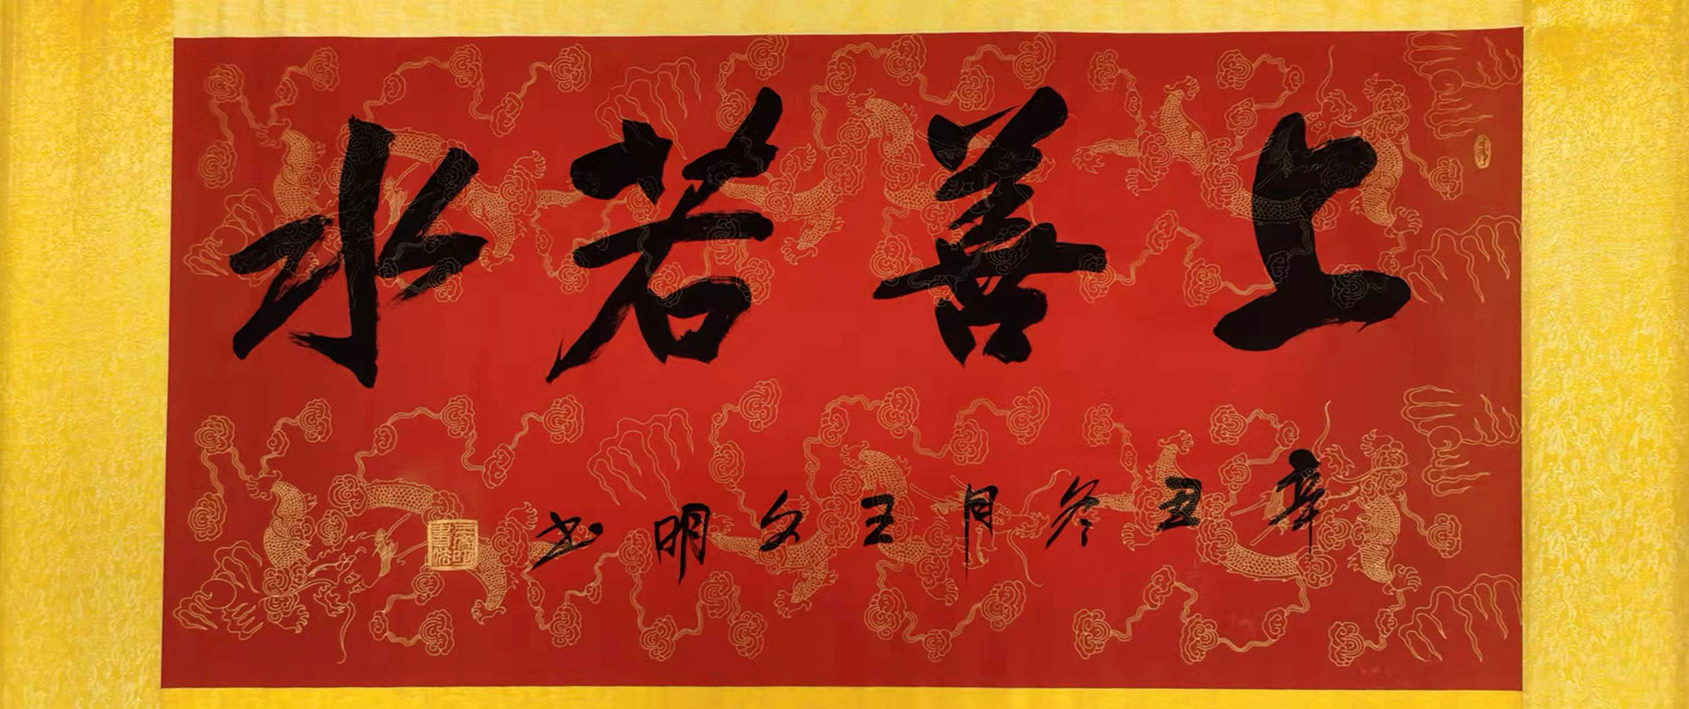 上善若水
辛丑冬月王文明书